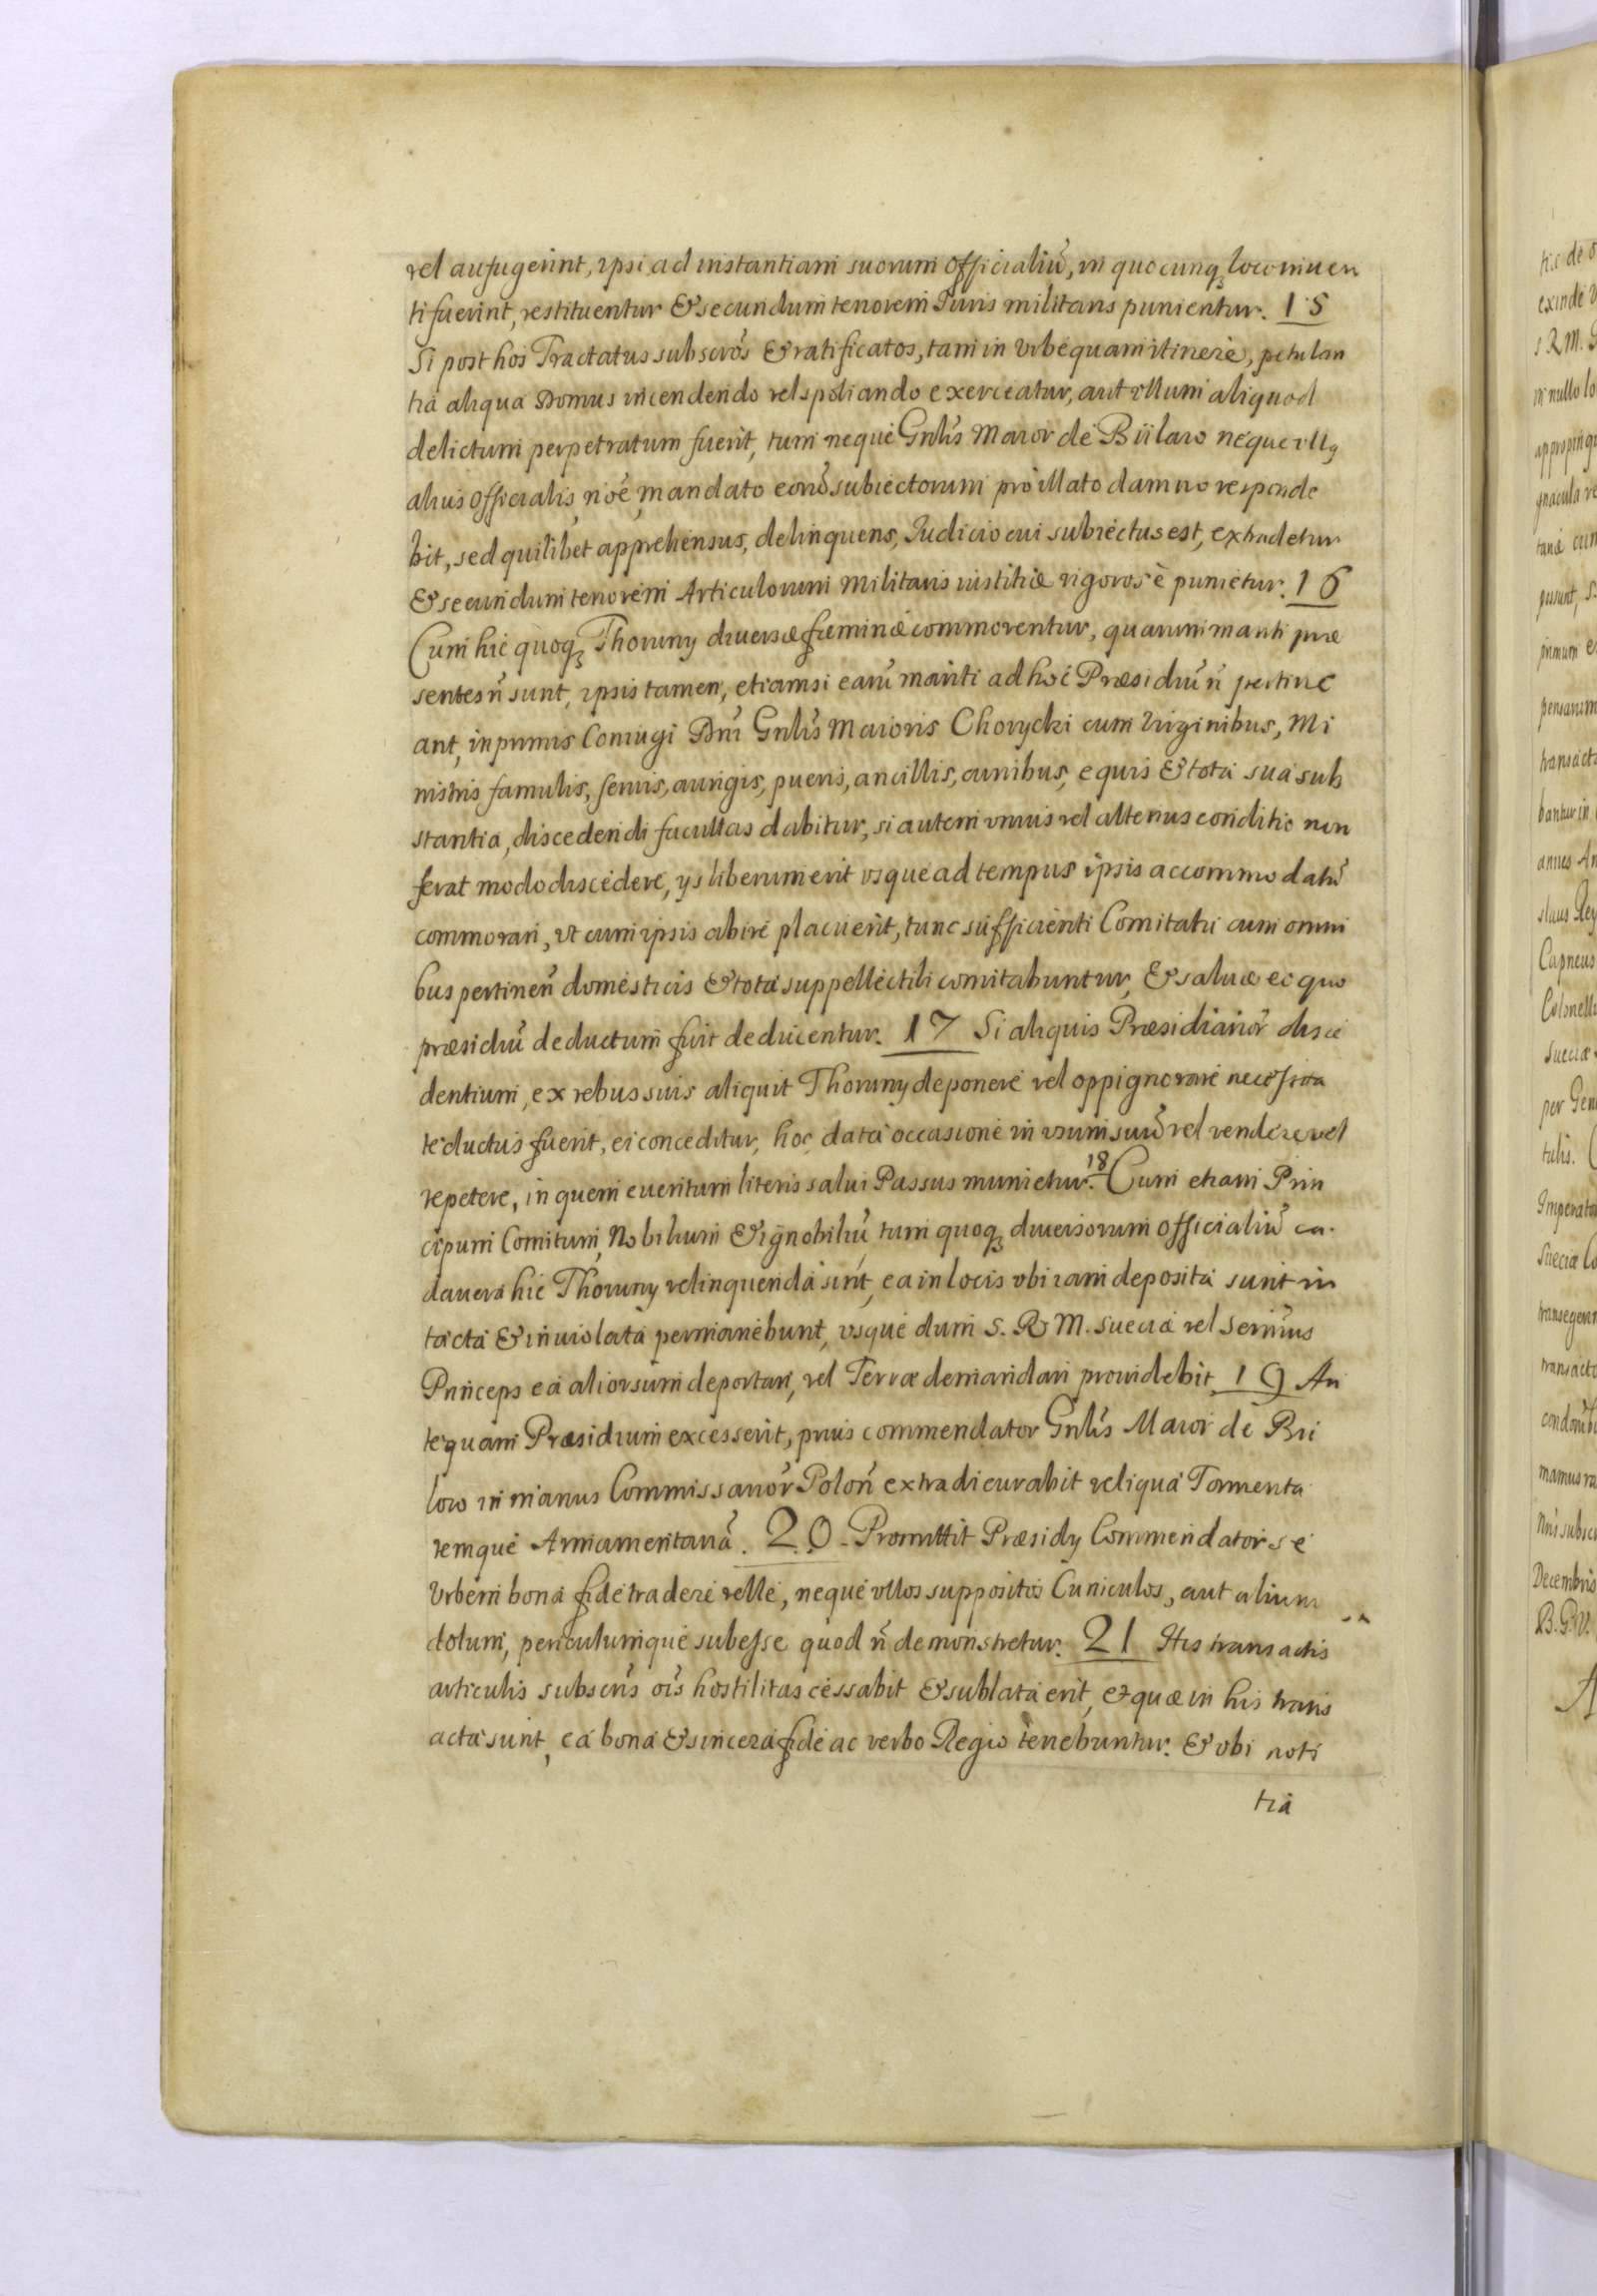 vel aufugerint, ipsi ad instantiam suorum Officialiũ, in quocunq; loco inuen
ti fuerint, restituentur & secundum tenorem Iuris militaris punientur. 15
Si post hos Tractatus subscr̃os & ratificatos, tam in Vrbe quam itinere, petulan
tia aliqua Domus incendendo vel spoliando exerceatur, aut vllum aliquod
delictum perpetratum fuerit, tum neque Gnl̃is Maior de Bülaw neque vllq
alius Officialis, nõe, mandato eorũ subiectorum pro illato damno responde
bit, sed quilibet apprehensus, delinquens, Iudicio cui subiectus est, extradetur
& secundum tenorem Articulorum Militaris iustitiæ rigorosè punietur. 16
Cum hic quoq; Thoruny diuersæ fæminæ commorentur, quarum mariti præ
sentes ñ sunt, ipsis tamen, etiamsi earũ mariti ad hoc Præsidiũ ñ pertine
ant, inprimis Coniugi Dñi Gnl̃is Maioris Chorycki cum Virginibus, Mi
nistris famulis, seruis, aurigis, pueris, ancillis, canibus, equis & tota sua sub
stantia, discedendi facultas dabitur, si autem vnius vel alterius conditio non
ferat modo discedere, ijs liberum erit vsque ad tempus ipsis accommodatũ
commorari, vt cum ipsis abire placuerit, tunc sufficienti Comitatu cum omni
bus pertineñ domesticis & tota suppellectili comitabuntur, & saluæ eo quo
præsidiũ deductum fuit deducentur. 17 Si aliquis Præsidiarior̃ disce
dentium, ex rebus suis aliquit Thoruny deponere vel oppignorare necessita
te ductus fuerit, ei conceditur, hoc data occasione in vsum suũ vel vendere vel
repetere, in quem euentum literis salui Passus munietur. 18 Cum etiam Prin
cipum Comitum, Nobilium & ignobiliũ, tum quoq; diuersorum Officialiũ ca
dauera hic Thoruny relinquenda sint, ea in locis vbi iam deposita sunt in
tacta & inuiolata permanebunt, vsque dum S. R M. Sueciæ vel Serm̃us
Princeps ea aliorsum deportari, vel Terræ demandari prouidebit. 19 An
tequam Præsidium excesserit, prius commendator Gnl̃is Maior de Bü
low in manus Commissarior̃ Poloñ extradi curabit reliqua Tormenta
remque Armamentariã. 20 Promittit Præsidy Commendator se
Vrbem bona fide tradere velle, neque vllos suppositos Cuniculos, aut alium
dolum, periculumque subesse quod ñ demonstretur. 21 His transactis
articulis subscr̃is ois̃ hostilitas cessabit & sublata erit, et quæ in his trans
acta sunt, ea bona & sincera fide ac verbo Regio tenebuntur. & vbi noti
tia